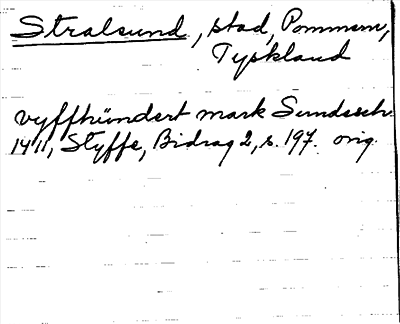 Stralsund, stad, Pommern,
Tyskland
vyffhundert mark Sundesch.
1411, Styffe, Bidrag 2, s. 197. orig.